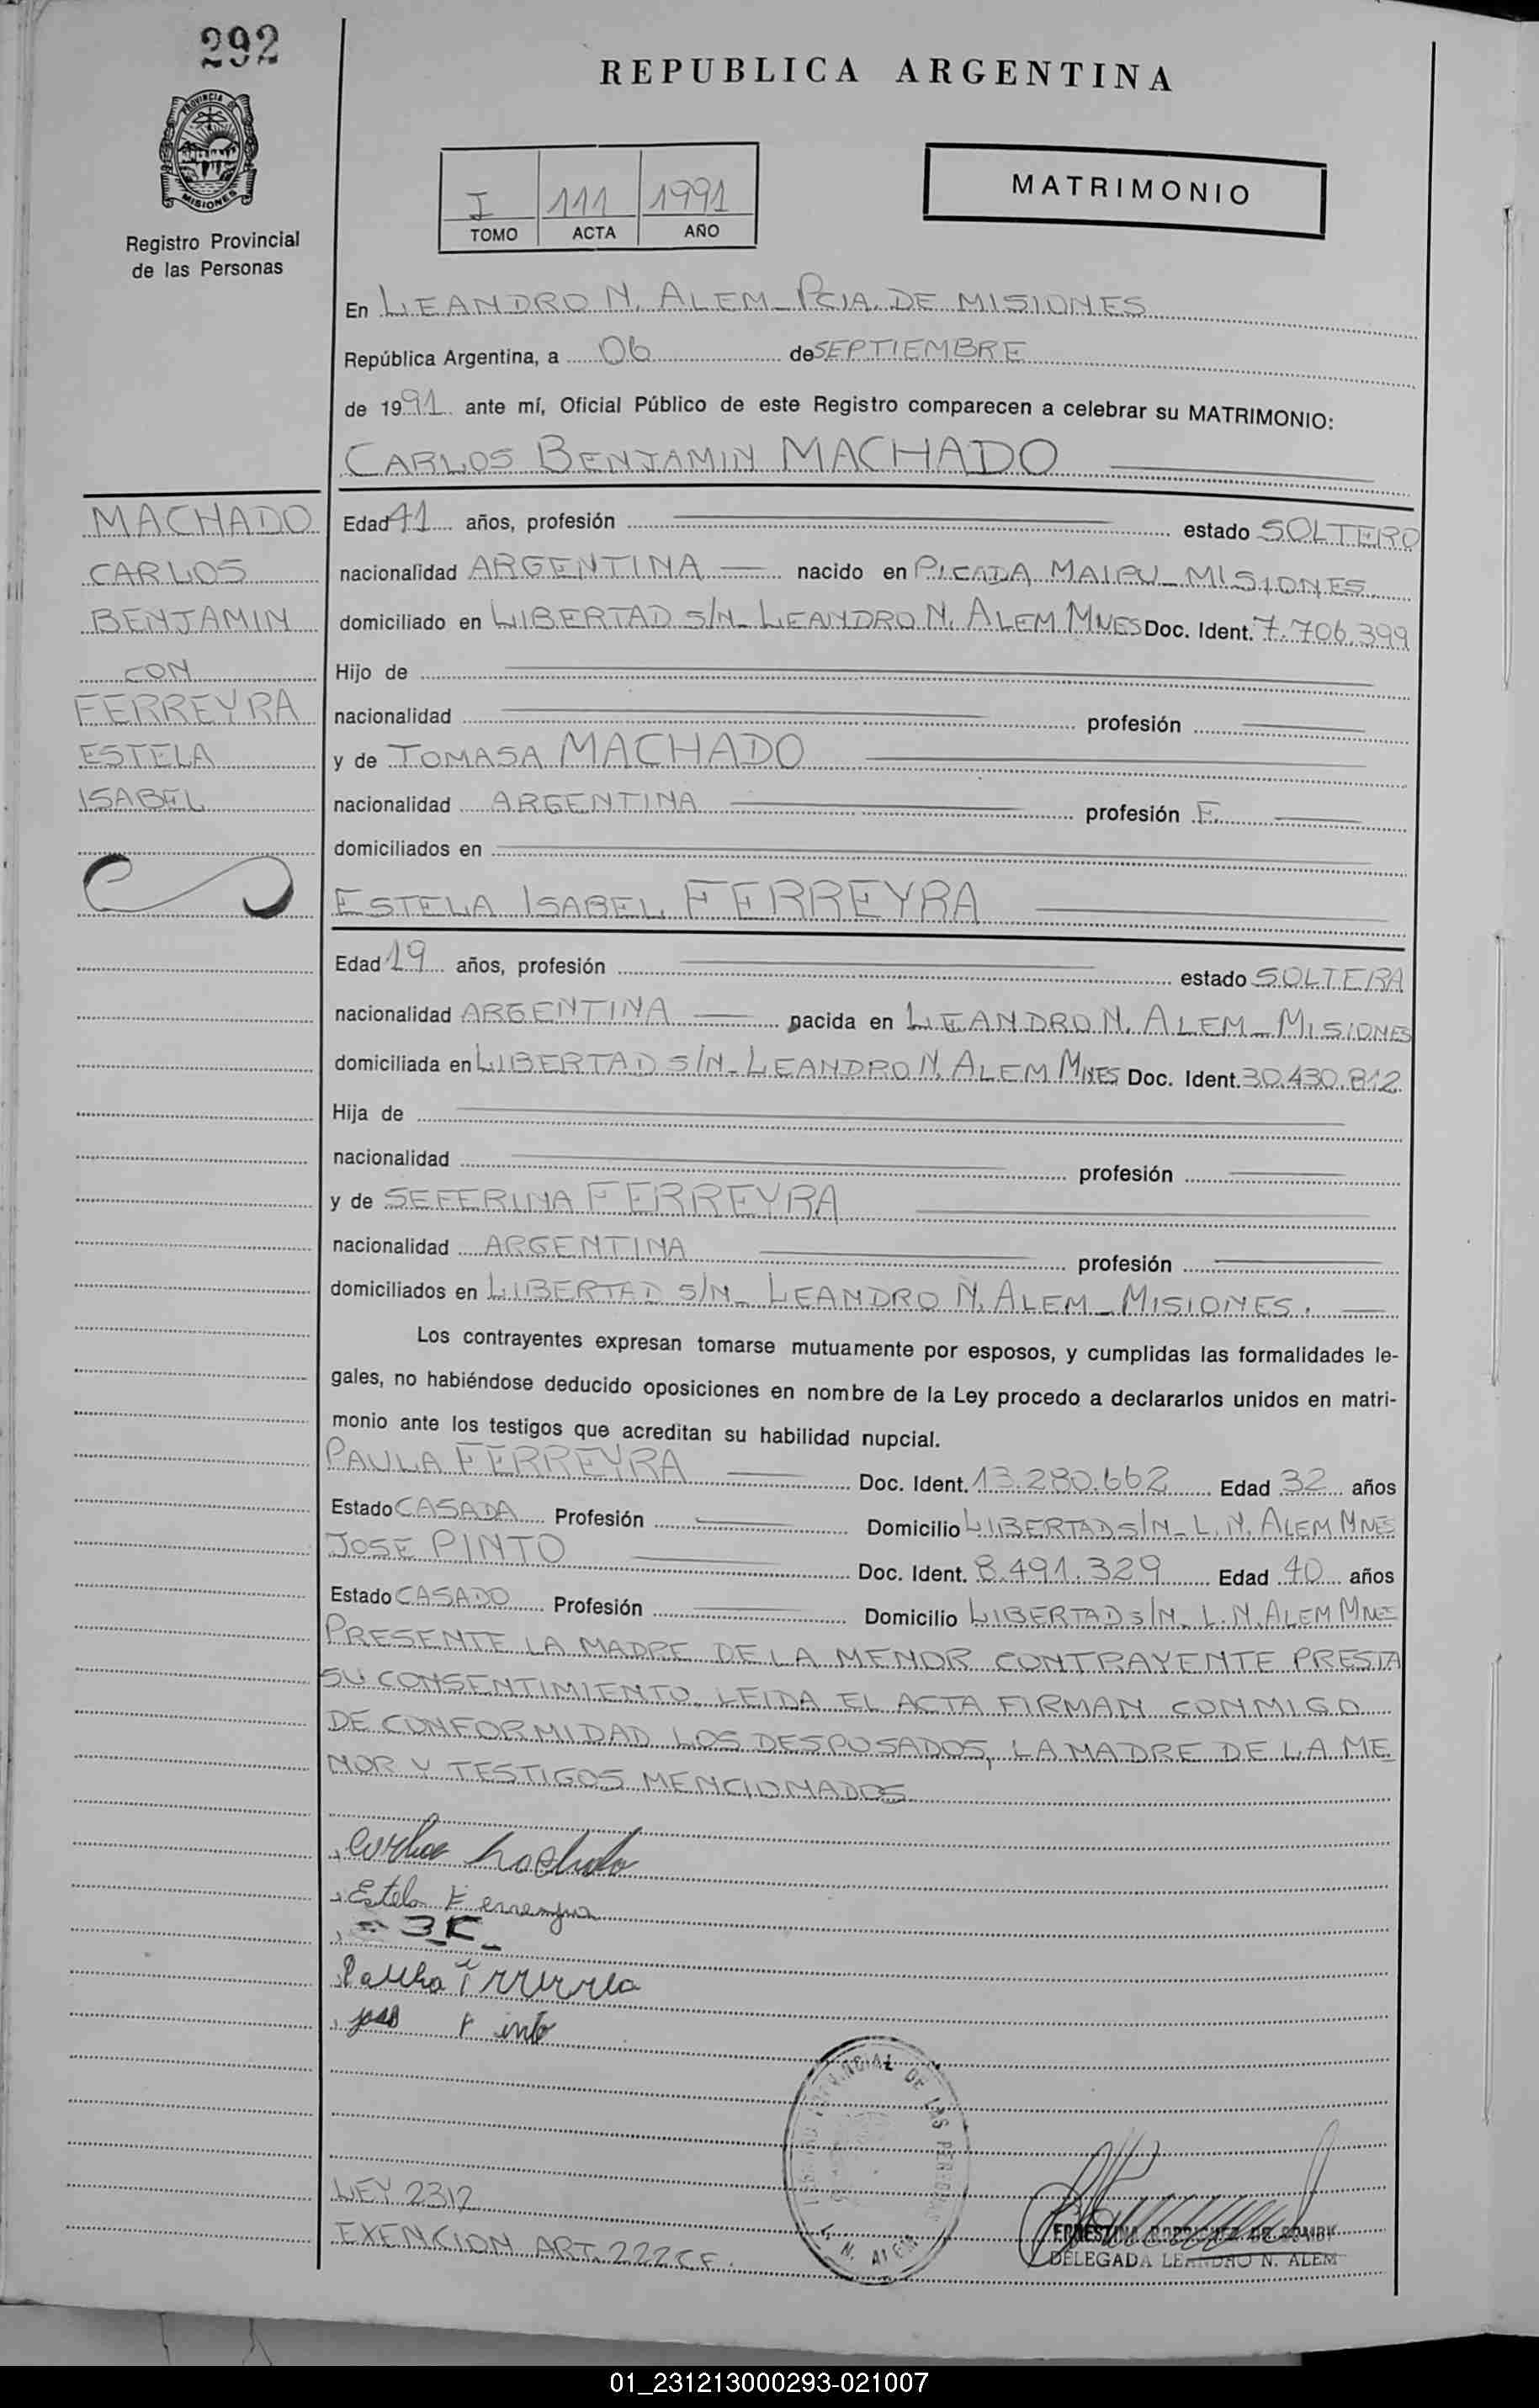 292
REPUBLICA ARGENTINA
PROVINCIA DE
MISIONES
Registro Provincial
de las Personas
I 111 1991
TOMO ACTA AÑO
MATRIMONIO
En LEANDRO N. ALEM_PCIA. DE MISIONES
República Argentina, a 06 de SEPTIEMBRE
de 1991 ante mí, Oficial Público de este Registro comparecen a celebrar su MATRIMONIO:
CARLOS BENJAMIN MACHADO
MACHADO
CARLOS
BENJAMIN
CON
FERREYRA
ESTELA
ISABEL
Edad 41 años, profesión estado SOLTERO
nacionalidad ARGENTINA nacido en PICADA MAIPU_MISIONES.
domiciliado en LIBERTAD S/N_LEANDRO N. ALEM MNES Doc. Ident. 7.706.399
Hijo de
nacionalidad profesión
y de TOMASA MACHADO
nacionalidad ARGENTINA profesión F.
domiciliados en
ESTELA ISABEL FERREYRA
Edad 19 años, profesión estado SOLTERA
nacionalidad ARGENTINA nacida en LEANDRO N. ALEM_MISIONES
domiciliada en LIBERTAD S/N_LEANDRO N. ALEM MNES Doc. Ident. 30.430.812
Hija de
nacionalidad profesión
y de SEFERINA FERREYRA
nacionalidad ARGENTINA profesión
domiciliados en LIBERTAD S/N_LEANDRO N. ALEM_MISIONES.
Los contrayentes expresan tomarse mutuamente por esposos, y cumplidas las formalidades le-
gales, no habiéndose deducido oposiciones en nombre de la Ley procedo a declararlos unidos en matri-
monio ante los testigos que acreditan su habilidad nupcial.
PAULA FERREYRA Doc. Ident. 13.280.662 Edad 32 años
Estado CASADA Profesión Domicilio LIBERTAD S/N_L.N. ALEM MNES
JOSE PINTO Doc. Ident. 8.491.329 Edad 40 años
Estado CASADO Profesión Domicilio LIBERTAD S/N_L.N. ALEM MNES
PRESENTE LA MADRE DE LA MENOR CONTRAYENTE PRESTA
SU CONSENTIMIENTO. LEIDA EL ACTA FIRMAN CONMIGO
DE CONFORMIDAD LOS DESPOSADOS, LA MADRE DE LA ME
NOR Y TESTIGOS MENCIONADOS
Estela Ferreyra
Jose Pinto
PROVINCIAL DE LAS PERSONAS
L. N. ALEM
LEY 2312
EXENCION ART. 222 C.F.
ERNESTINA RODRIGUEZ DE
DELEGADA LEANDRO N. ALEM
01_231213000293-021007